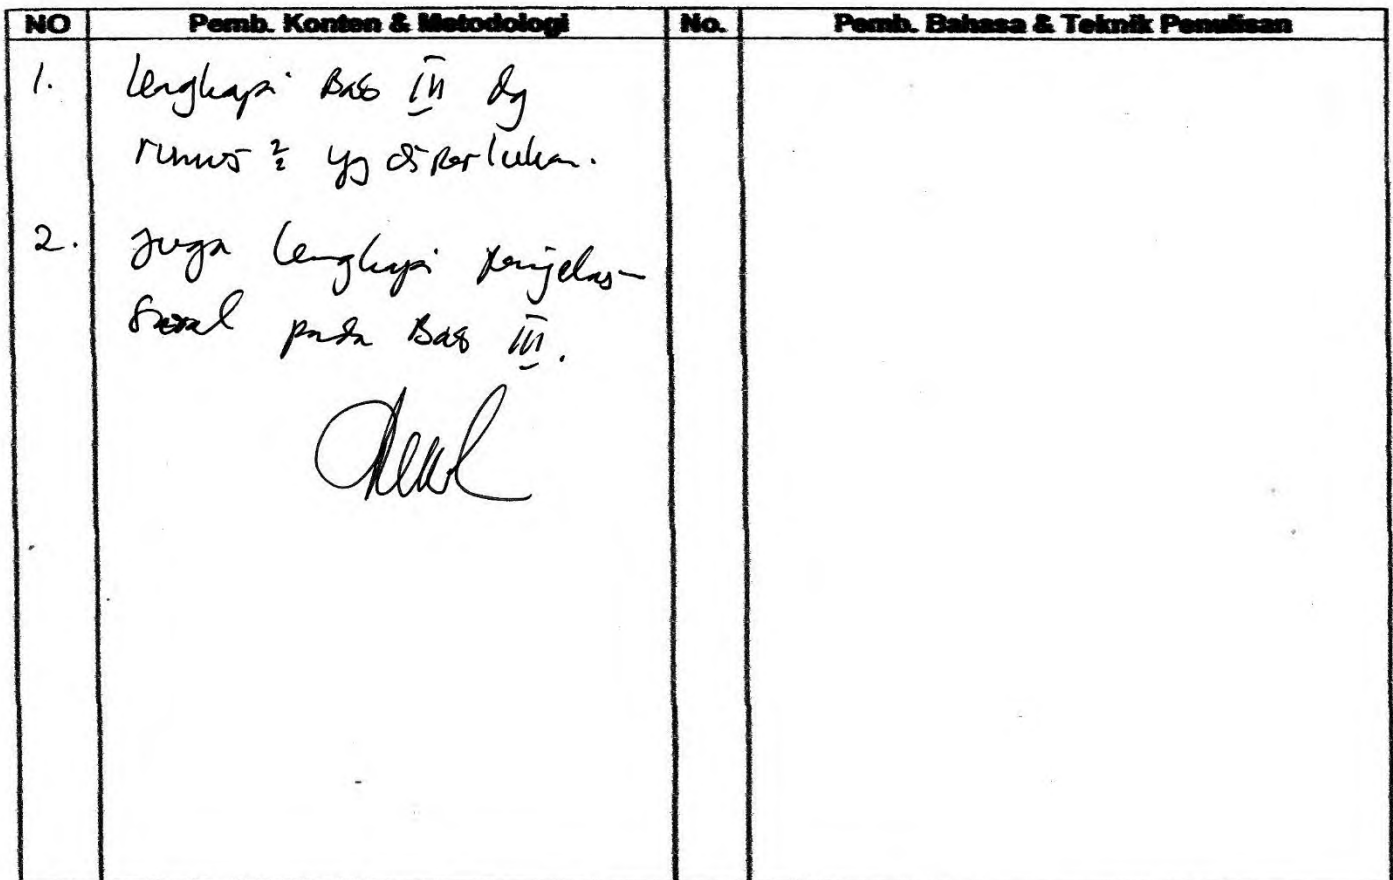 NO Pemb. Konten & Metodologi No. Pemb. Bahasa & Teknik Penulisan
1. lengkapi Bab III dg
rumus² yg diperlukan.
2. Juga lengkapi penjelas-
pada Bab III.